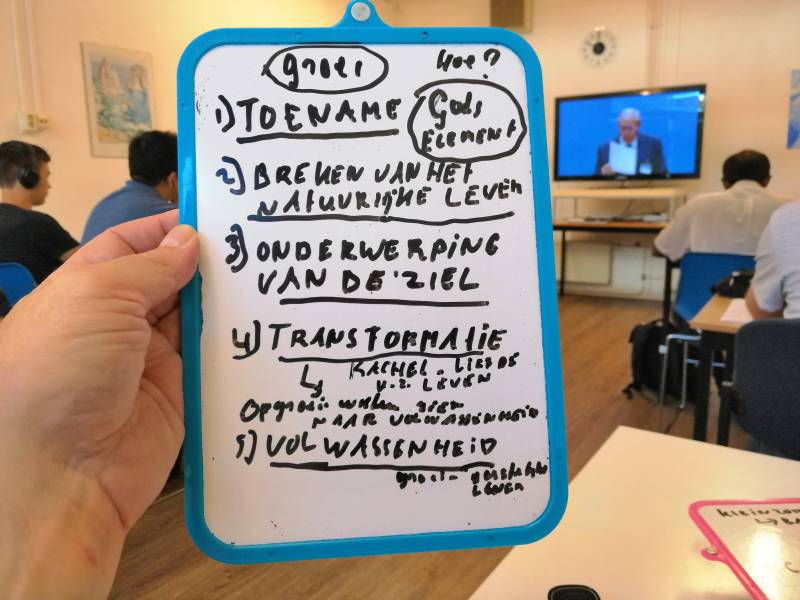 groei
Hoe?
1) TOENAME
Gods
ELEMENT
2) BREKEN VAN HET
NATUURIJKE LEVEN
3) ONDERWERPING
VAN DE ZIEL
4) TRANSFORMATIE
RACHEL. LIEFDE
V.Z. LEVEN
Opgroei
NAAR VOLWASSENHEID
5) VOLWASSENHEID
groei
LEVEN
KLEIN